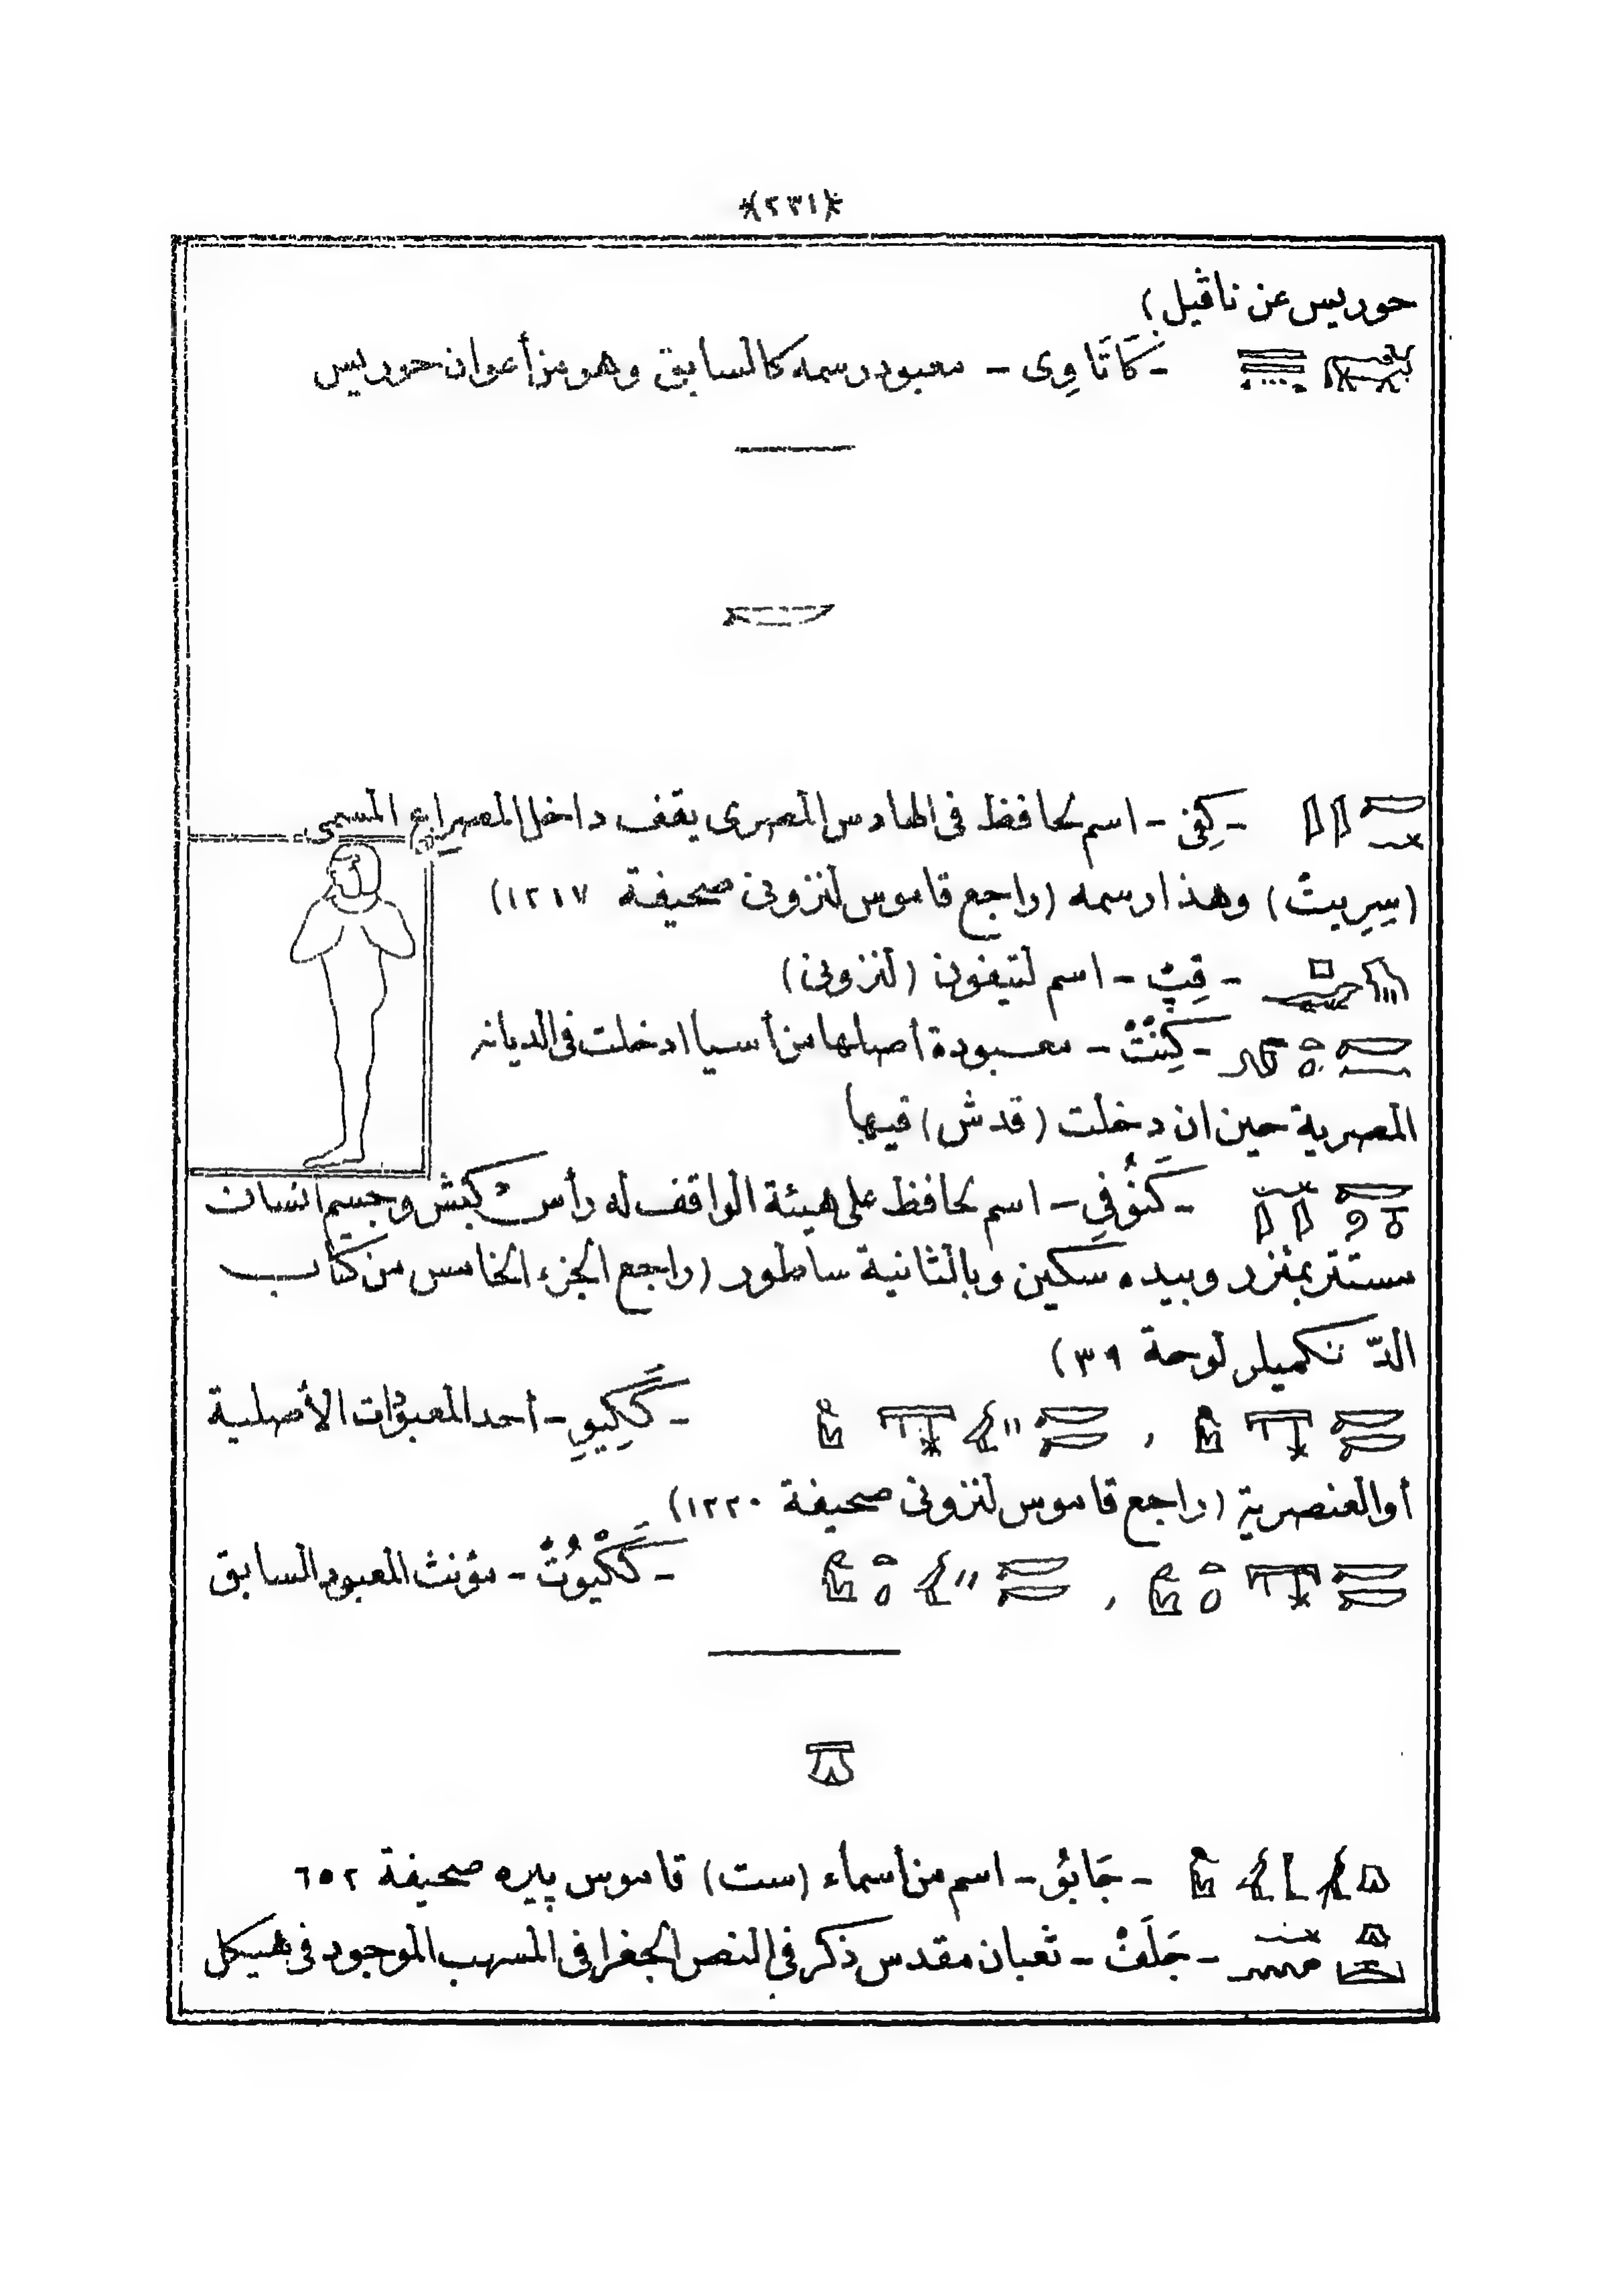 *(٢٣١)*
حوريس عن ناڤيل)
- كَاتَاوِى - معبود رسمه كالسابق وهو من أعوان حوريس
- كِفِى - اسم لحافظ فى الهادس المصرى يقف داخل المصراع المسمى
(سِرِيتْ) وهذا رسمه (راجع قاموس لنزونى صحيفة ١٢١٧)
- قِپْ - اسم لتيفون (لنزونى)
- كِنْتْ - معبودة أصلها من أسيا ادخلت فى الديانه
المصرية حين ان دخلت (قدش) فيها
- كَنُوفِى - اسم لحافظ على هيئة الواقف له رأس كبش وجسم انسان
مستتر بمئزر وبيده سكين وبالثانية ساطور (راجع الجزء الخامس من كتاب
الدّنكميلر لوحة ٣٩)
- كَكِيوِ - أحد المعبودات الأصلية
أو العنصرية (راجع قاموس لنزونى صحيفة ١٢٢٠)
- كَكْيُوتْ - مؤنث المعبود السابق
- جَابُو - اسم من أسماء (ست) قاموس پيره صحيفة ٦٥٢
- جَلَفْ - ثعبان مقدس ذكر فى النص الجغرافى المسهب الموجود فى هيكل